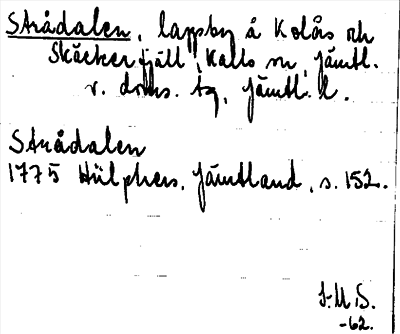 Strådalen, lappby å Kolås och
Skäckerfjäll, Kalls sn, Jämtl.
v. doms. tg, Jämtl. l.
Strådalen
1775 Hülphers, Jämtland, s. 152.
I-M S.
-62.